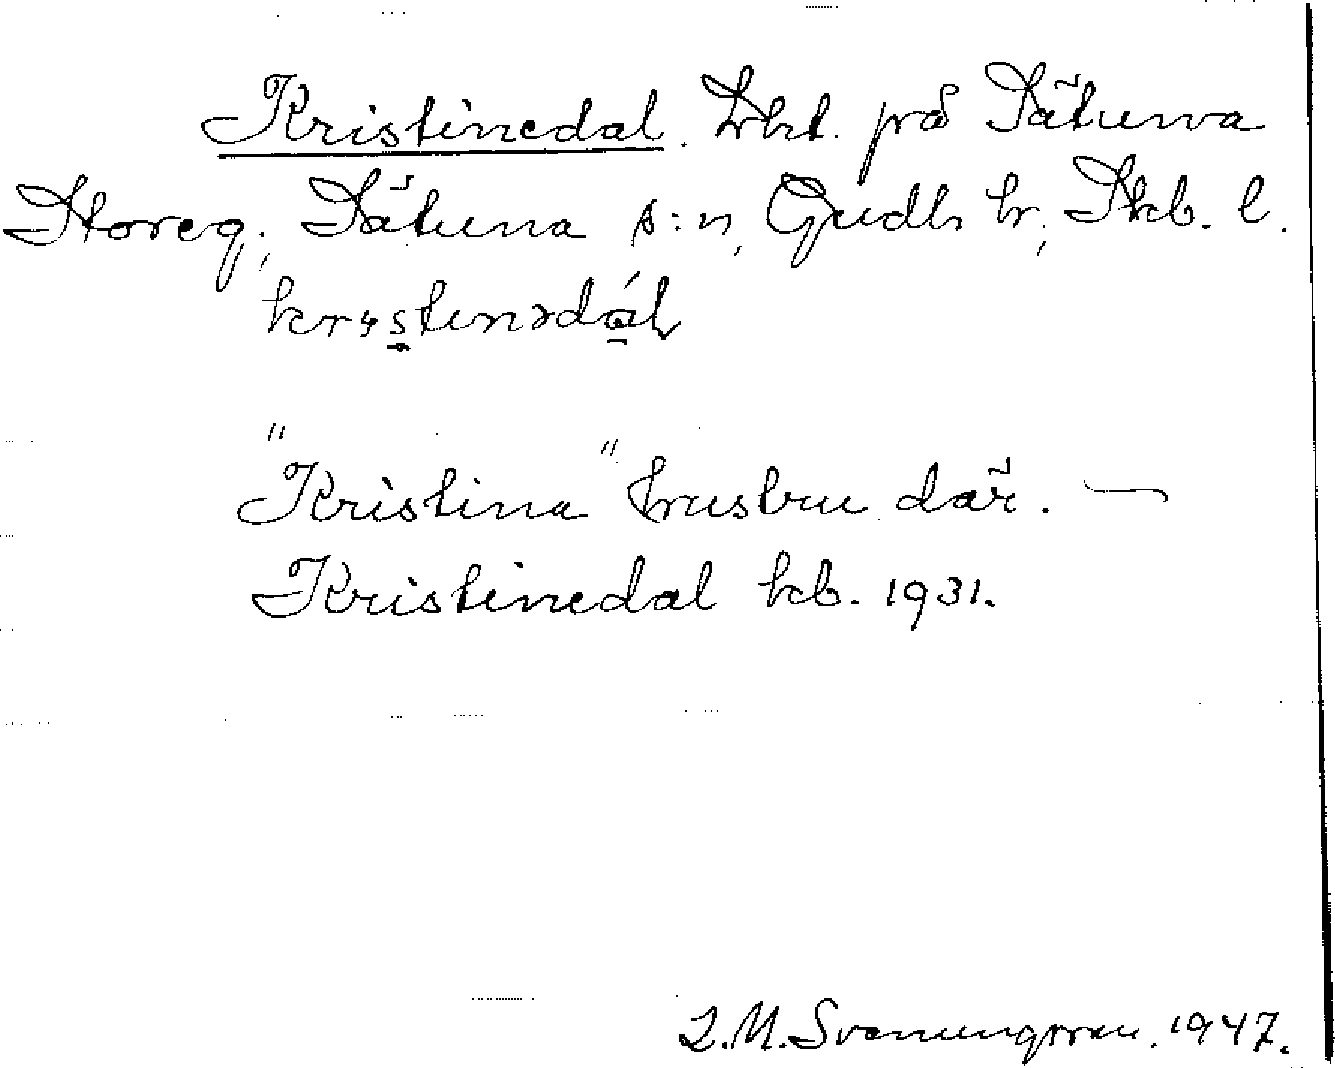 Kristinedal. Lht. på Sätuna
Storeg., Sätuna s:n, Gudh. hr, Skb. l.
"Kristina" hustru där. —
Kristinedal kb. 1931.
L.M. Svenungsson. 1947.